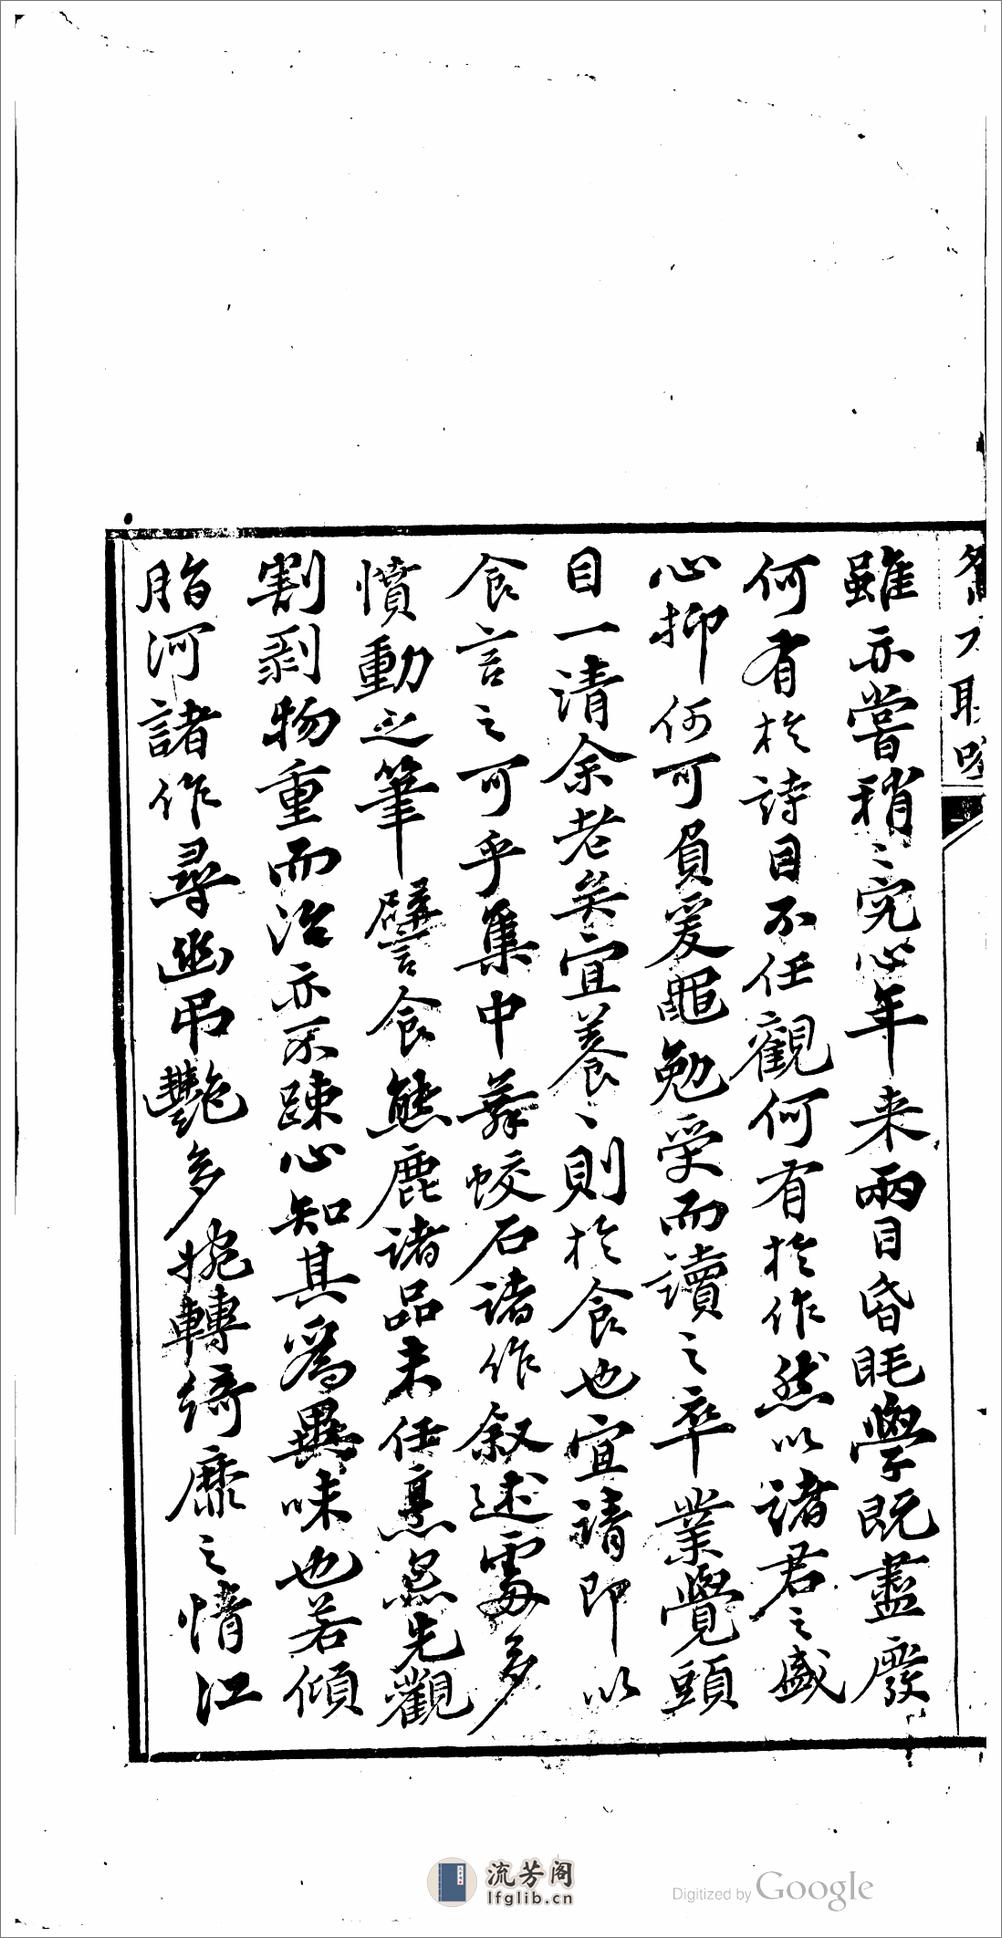 雖亦嘗稍〻究心年来兩目昏眊學既盡廢
何有於詩目不任觀何有於作然以諸君之盛
心抑何可負爰黽勉受而讀之卒業覺頭
目一清余老矣宜養〻則於食也宜請即以
食言之可乎集中蕣蛟石諸作叙述處多
憤動之筆譬食熊鹿諸品未任烹炰先觀
割剥物重而治亦不踈心知其爲異味也若傾
脂河諸作尋幽弔艷多婉轉綺靡之情江
流芳阁
lfglib.cn
Digitized by Google